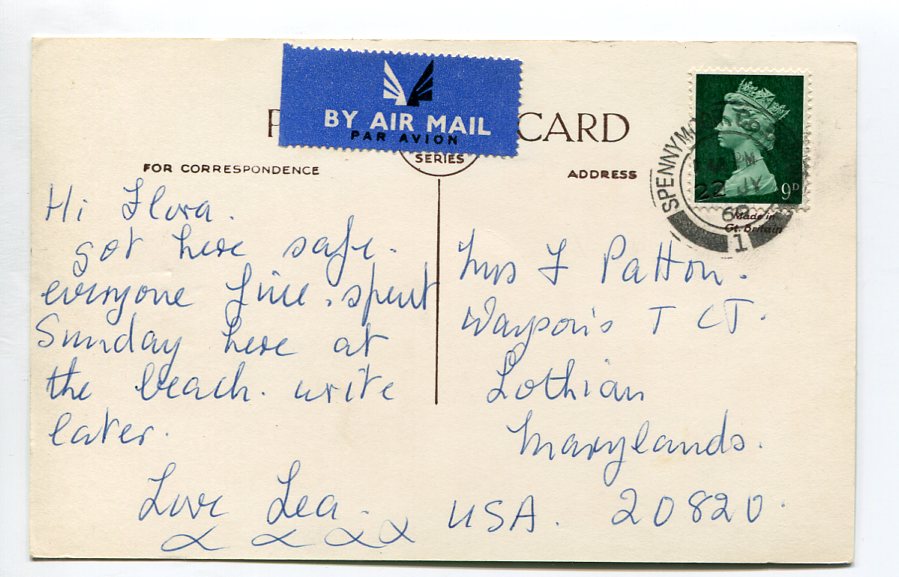 BY AIR MAIL
PAR AVION
CARD
SERIES
FOR CORRESPONDENCE
ADDRESS
9D
Made in
Gt. Britain
22 JY
69
1
Hi Flora.
got here safe.
everyone fine. spent
Sunday here at
the beach. write
later.
Love Lea.
Mrs F Patton.
T CT.
Lothian
Marylands.
USA. 20820.